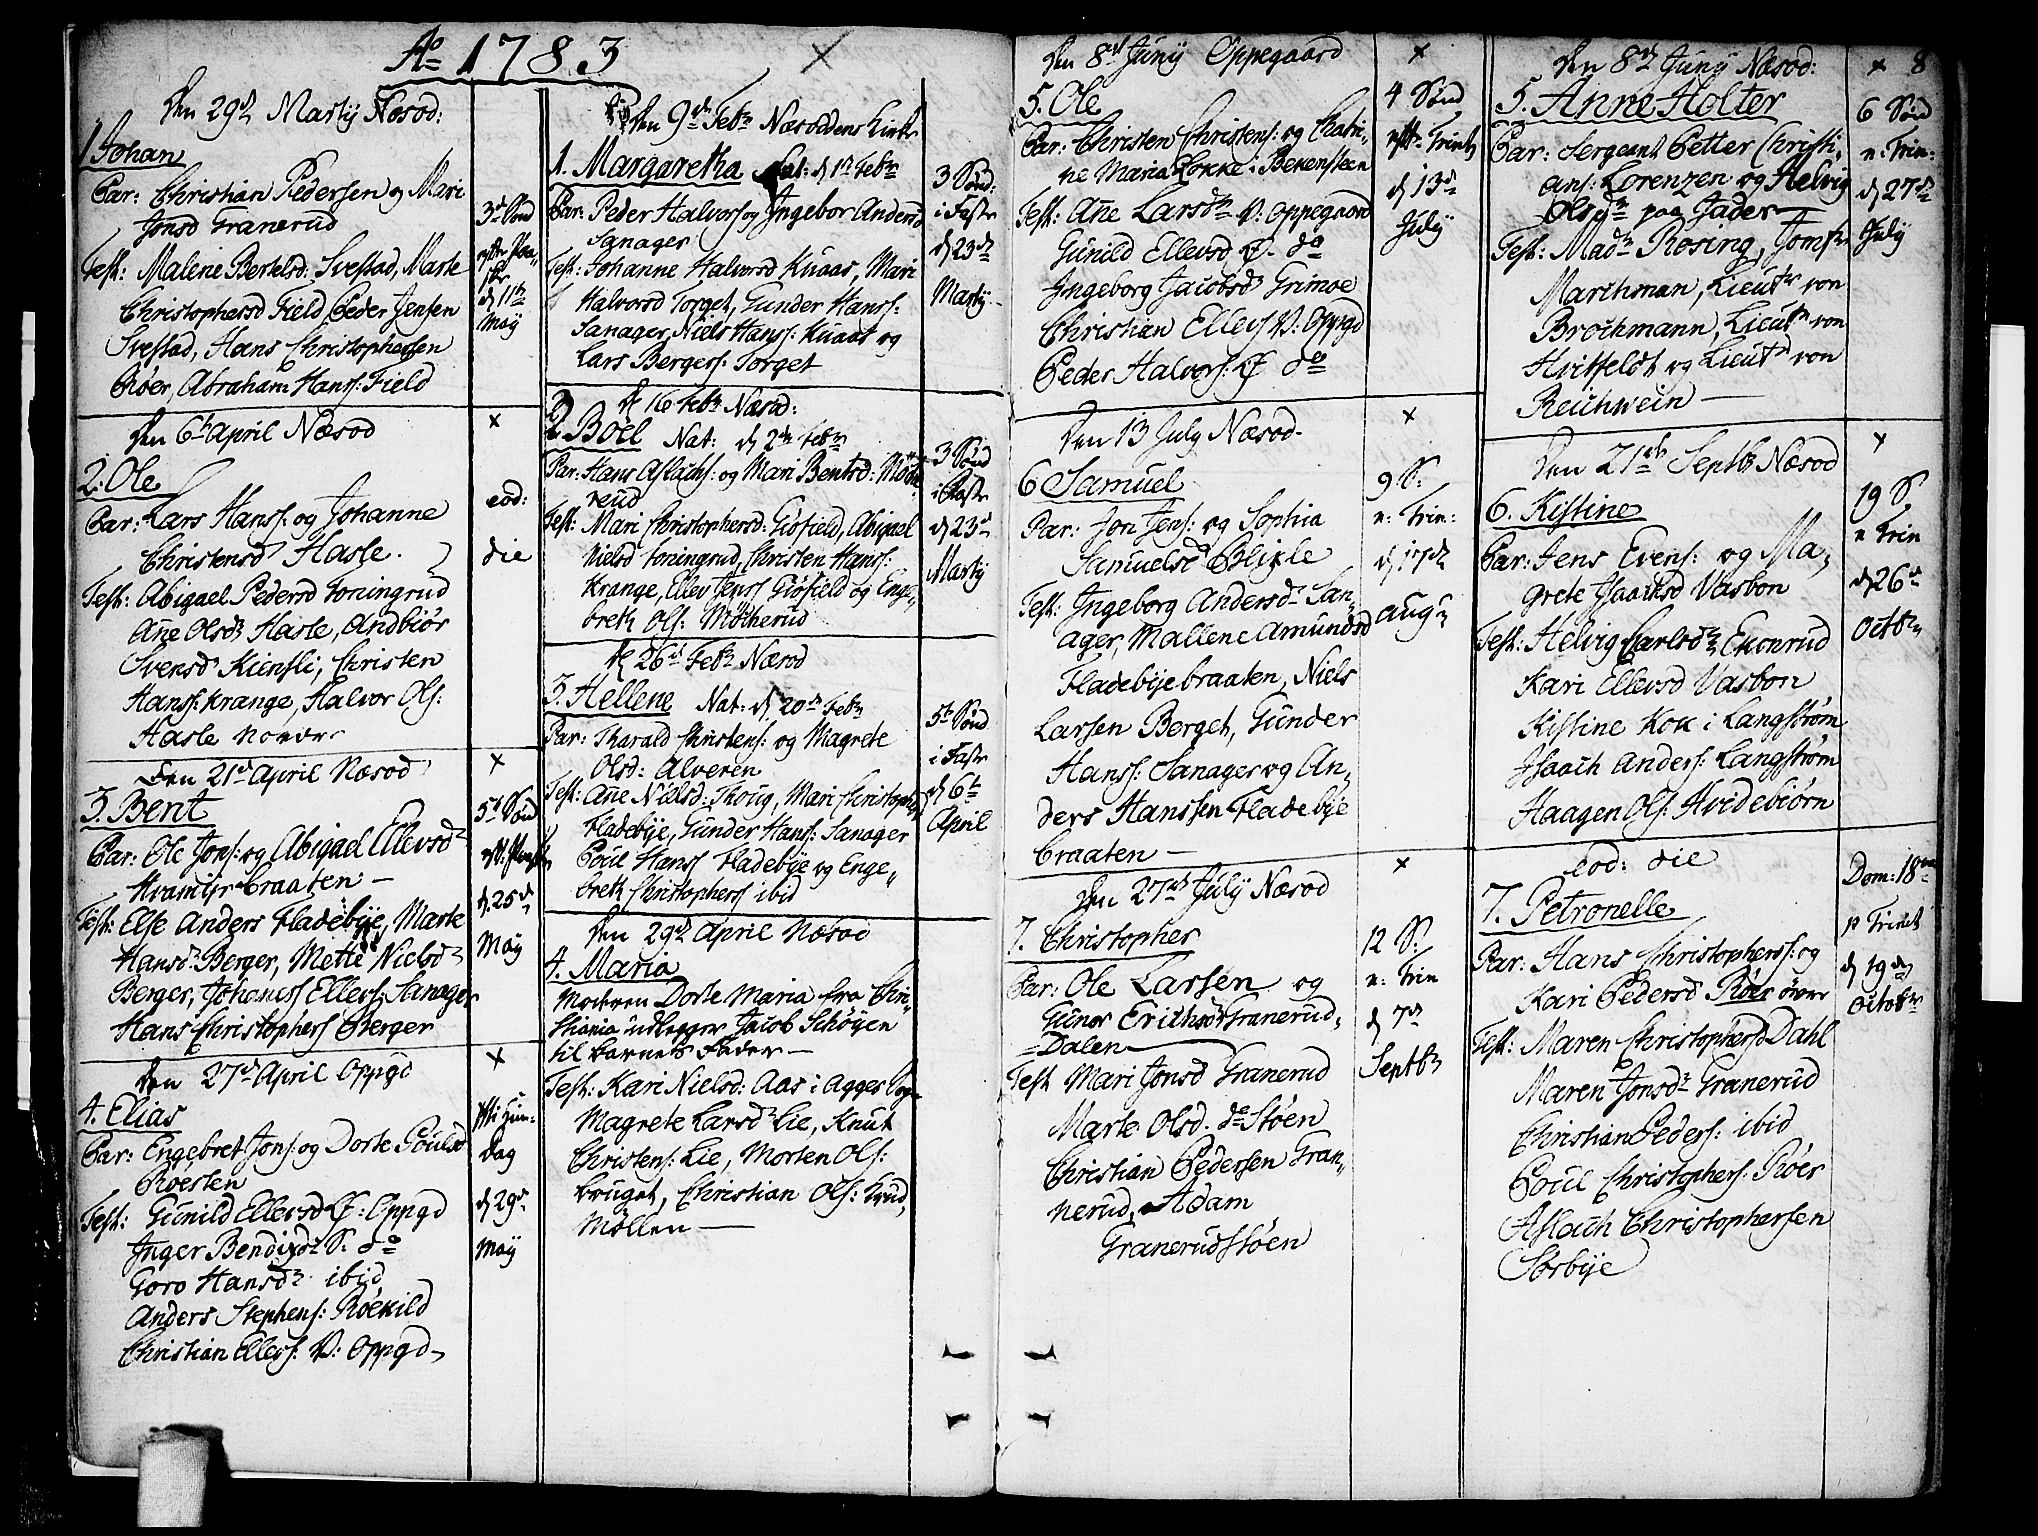 Ao 1783
Den 29de Martij Næsod:
1 Johan
Par: Christian Pedersen og Mari
Jonsd Granerud
Test: Malene Bertelsd: Svestad, Marte
Christophersd Field Peder Jensen
Svestad, Hans Christophersen
Röer, Abraham Hanss: Field
3de Sönd
efter Paa„
ske
d 11te
Maij
Den 6te April Næsod
2. Ole
Par: Lars Hanss: og Johanne
Christensd Hasle.
Test: Abigael Pedersd Toningrud
Ane Olsdr Hasle, Andbiör
Svensd Kiensli, Christen
Hanss: Krange, Halvor Ols:
Hasle nordre
eod:
die
Den 21de April Næsod
3. Bent
Par: Ole Jons: og Abigael Ellevsdr
Kvamsjerbraaten —
Test: Else Anders Fladebÿe, Marte
Hansdr Berger, Mette Nielsdr
Berger, Johaness Ellevs: Sanager
Hans Christophers Berger
5te Sönd
eft: Paaske
d. 25de
Maij
Den 27de April Oppgd
4. Elias
Par: Engebret Jons: og Dorte Poulsd
Röesten
Test: Gunild Ellevsd Ø: Oppgd
Inger Bendixdr S: do
Goro Hansdr ibid
Anders Stephens: Röekild
Christian Ellevs: V: Oppgd
Chri Him-
dag
d 29de
Maij
Den 9de Febr Næsoddens Kirke
1. Margaretha Nat: d 1st Febr
Par: Peder Halvors og Ingebor Andersd
Sanager
Test: Johanne Halvorsd Kuaas, Mari
Halvorsd Torget, Gunder Hanss:
Sanager, Niels Hanss: Kuaas og
Lars Bergers: Torget
3 Sönd:
i Faste
d 23de
Martij
d 16 Febr Næsod:
2. Boel Nat: d 2de Febr
Par: Hans Aslachs: og Mari Bentsd: Möche
rud
Test: Mari Christophersd: Giöfield, Abigael
Nielsd Toningrud, Christen Hanss:
Krange, Ellev Jenss Giöfield og Enge„
breth Ols: Möcherud
3 Sönd
i Faste
d 23de
Martij
d 26de Febr Næsod
3. Hellene Nat: d. 20de Febr
Par: Tharald Christens: og Magrete
Olsd: Alveren
Test: Ane Nielsd: Skoug, Mari Christophersd
Fladebÿe, Gunder Hans: Sanager
Poul Hans Fladebÿe og Enge„
breth Christophers ibid
5te Sönd
i Faste
d 6te
April
Den 29de April Næsod
4. Maria
Moderen Dorte Maria fra Chri„
stiania udlegger Jacob Schöyen
til barnets Fader —
Test: Kari Nielsd: Aas i Agger Sogn
Magrete Larsdr Lie, Knut
Christens: Lie, Morten Ols:
bruget, Christian Ols: Krud„
Möllen —
Den 8de Junij Oppegaard
5. Ole
Par: Christen Christens: og Chatri„
ne Maria Lökke i Bekensteen
Test: Ane Larsdr V: Oppegaard
Gunild Ellevsd Ø. do
Ingeborg Jacobsd Grimöe
Christian Ellevs V: Oppgd
Peder Halvors: Ø do
4 Sönd
eft: Trinit
d 13de
July
Den 13 July Næsod.
6 Samuel
Par: Jon Jens: og Sophia
Samuelsd Blixle
Test: Ingeborg Andersdr San„
ager, Mallene Amundsd
Fladebÿebraaten, Niels
Larsen Berget, Gunder
Hanss: Sanager og An„
ders Hanssen Fladebÿe
braaten —
9 S:
e: Trin:
d 17de
Augr
Den 27de July Næsod
7. Christopher
Par: Ole Larsen og
Gunor Erichsdr Granerud„
=Dalen
Test Mari Jonsd Granerud
Marte Olsd. deStöen
Christian Pedersen Gran„
nerud, Adam
Granerudstöen
12 S:
e: Trin
d 7de
Septbr
Den 8de Junij Næsod:
8
5. Anne Holter
Par: Sergeant Petter Christi„
ans: Lorenzen og Helvig
Olsdr paa Jader
Test: Madme Rosing, Jomfr
Marthman, Lieutn von
Brochmann, Lieutn von
Hvitfeldt og Lieutn von
Reichwein —
6 Sönd
e: Trin:
d 27de
July
Den 21de Septbr Næsod
6. Kistine
Par: Jens Evens: og Ma„
grete Isaachsd Vasbon
Test: Helvig Carlsdr Ekonrud
Kari Ellevsd Vasbon
Kistine Kok i Langström
Isaach Anders: Langström
Haagen Ols: Hvidebiörn
19 S.
e Trin
d 26de
Octbr
eod: die
7. Petronelle
Par: Hans Christophers: og
Kari Pedersd Röer övre
Test: Maren Christophersd Dahl
Maren Jonsdr Granerud
Christian Peders: ibid
Poul Christophers: Röer
Aslach Christophersen
Sörbÿe
Dom: 18va
p Trinit
d 19de
Octobr